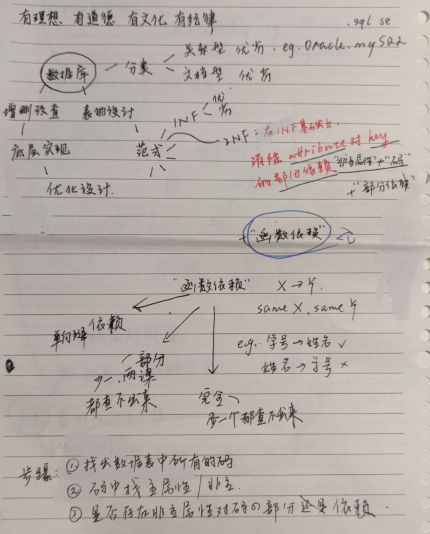 有理想 有道德 有文化 有纪律
.sql se
数据库 — 分类
关系型 优劣. eg. Oracle. mySQL
文档型 优劣
增删改查 表的设计
1NF 优 劣
底层实现 范式
2NF: 在1NF基础上.
消除 attribute 对 key
的部分依赖 "非主属性"+"码"
+"部分依赖"
优化设计.
+"函数依赖"
"函数依赖" X→Y.
same X, same Y
依赖
eg. 学号→姓名 ✓
姓名→学号 ×
部分
少一 两课
都查不出来
完全
另一个都查不出来
步骤: ① 找出数据表中所有的码
② 码中找主属性/非主.
③ 是否存在非主属性对码的部分还是依赖.